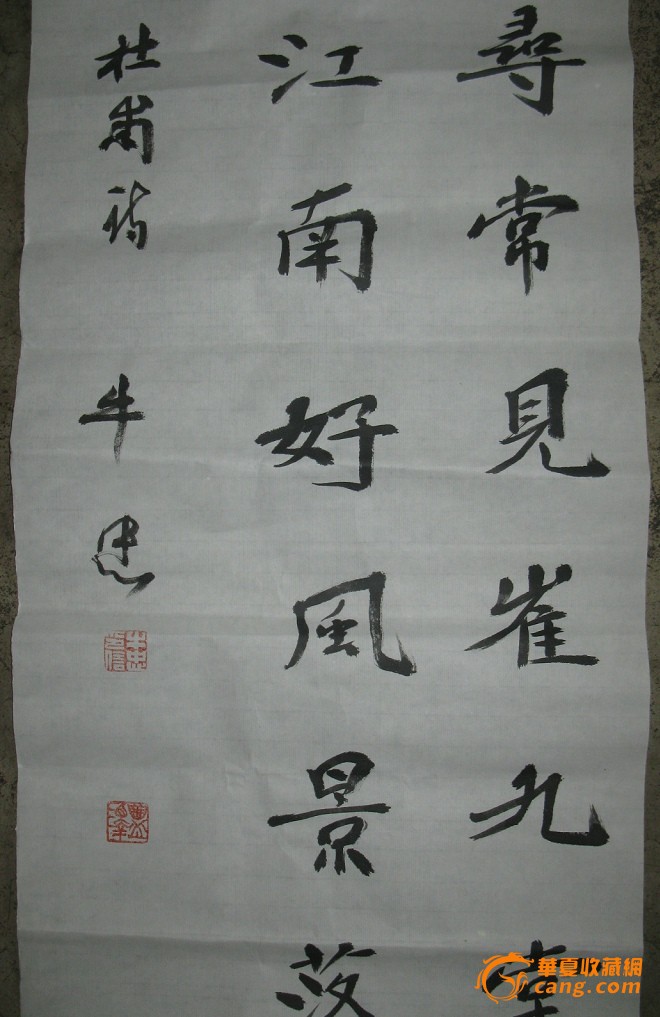 尋常見崔九堂
江南好風景落
杜甫詩 牛忠
華夏收藏網
cang.com